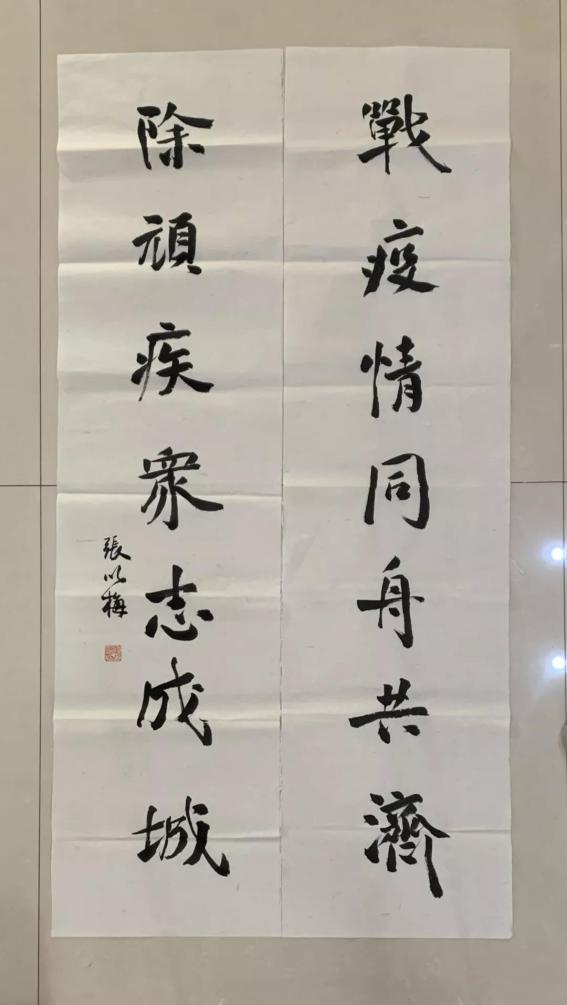 戰疫情同舟共濟
除頑疾衆志成城
張以梅